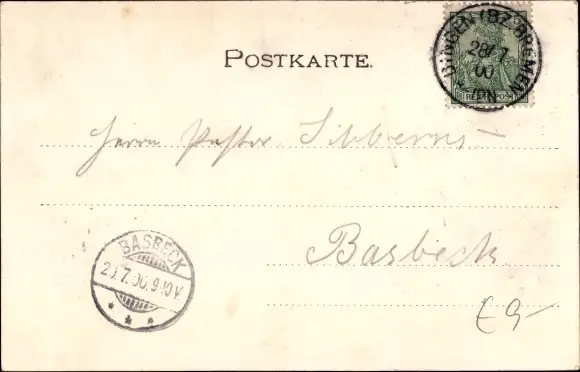 POSTKARTE.
(BZ. BREMEN)
28/7
00
REICHSPOST
Herrn Pastor Sibberns
BASBECK
7.00.9-10V.
Basbeck